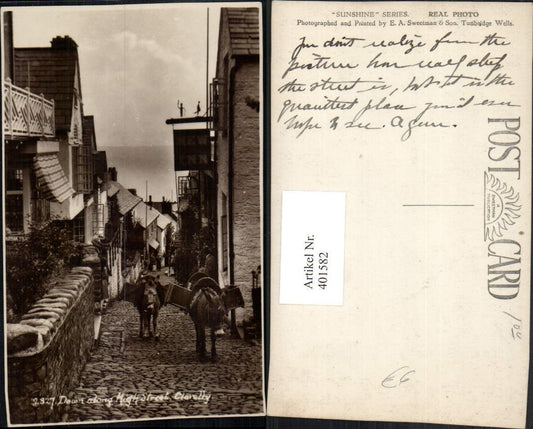 2.827 Down along High Street, Clovelly
"SUNSHINE" SERIES. REAL PHOTO
Photographed and Printed by E. A. Sweetman & Son, Tunbridge Wells.
You don't realize from the
picture how really steep
the street is, but it is the
quaintest place you'd ever
hope to see.
POST CARD
A SWEETMAN
Artikel Nr.
401582
E6